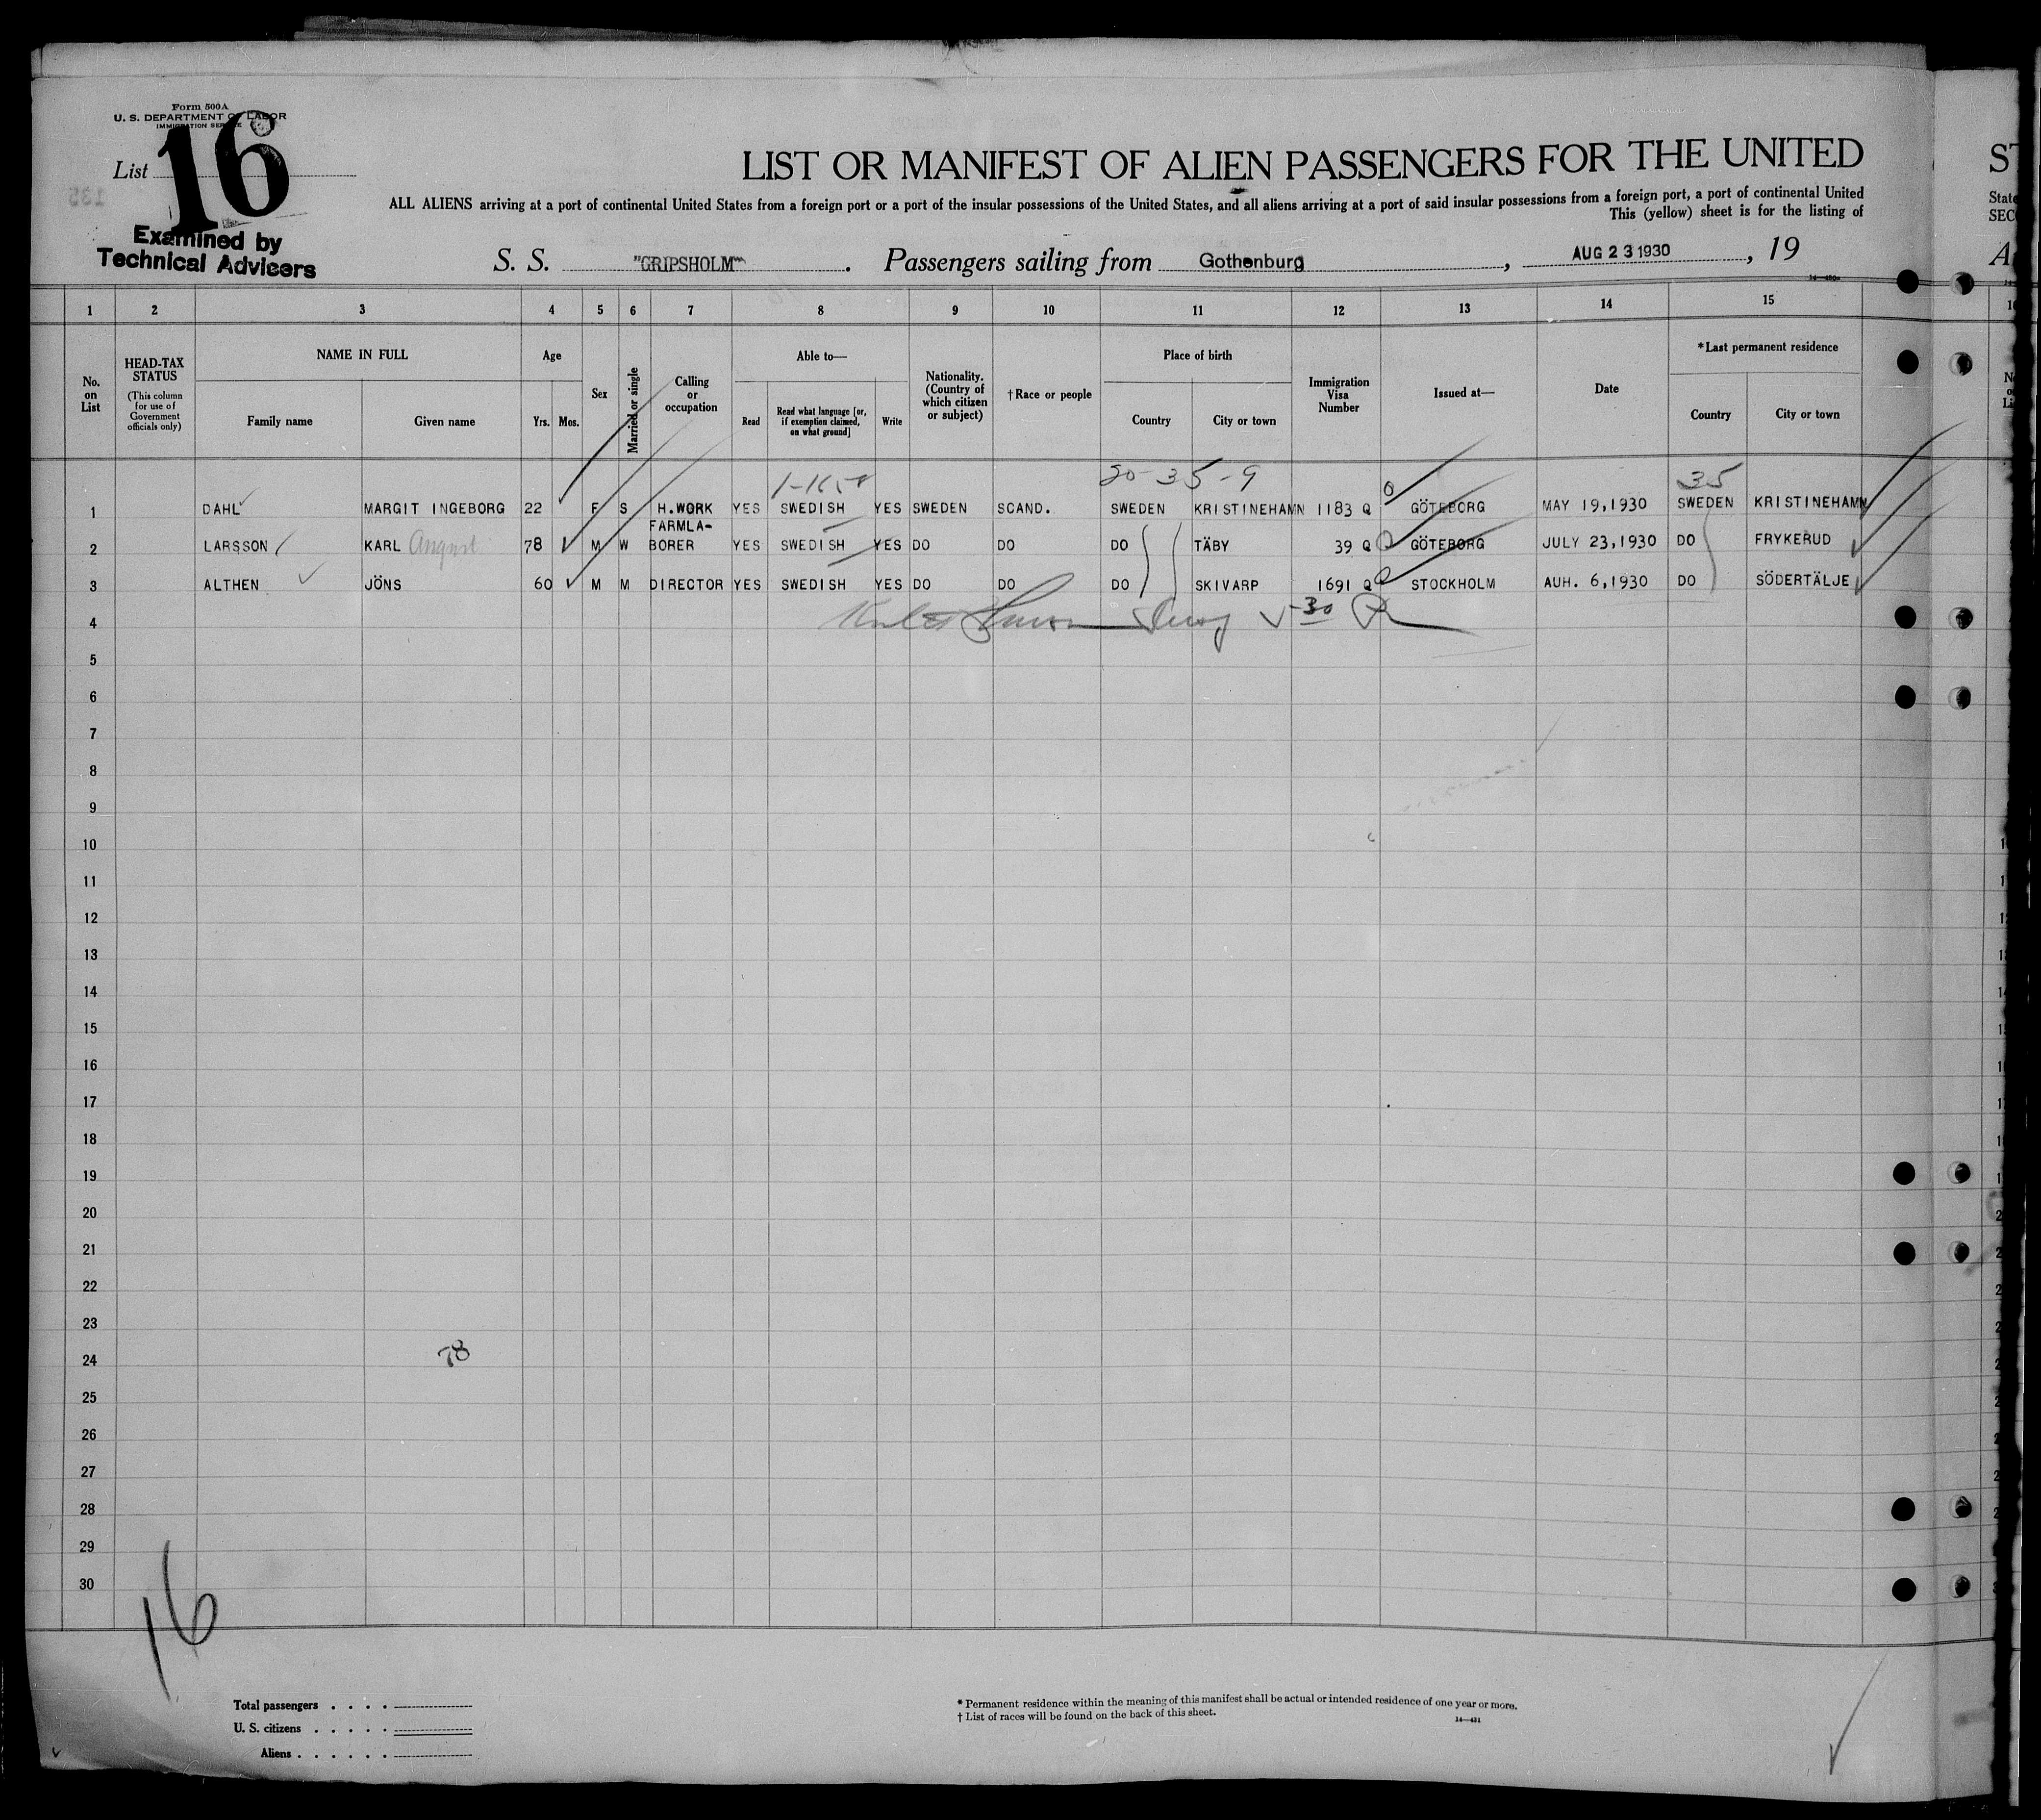 Form 500A
U. S. DEPARTMENT OF LABOR
IMMIGRATION SERVICE
List 16
135
Examined by
Technical Advisers
LIST OR MANIFEST OF ALIEN PASSENGERS FOR THE UNITED
ALL ALIENS arriving at a port of continental United States from a foreign port or a port of the insular possessions of the United States, and all aliens arriving at a port of said insular possessions from a foreign port, a port of continental United
This (yellow) sheet is for the listing of
S. S. "GRIPSHOLM". Passengers sailing from Gothenburg, AUG 23 1930, 19
1 2 3 4 5 6 7 8 9 10 11 12 13 14 15
No. on List
HEAD-TAX STATUS (This column for use of Government officials only)
NAME IN FULL
Family name Given name
Age
Yrs. Mos.
Sex
Married or single
Calling or occupation
Able to—
Read
Read what language [or, if exemption claimed, on what ground]
Write
Nationality. (Country of which citizen or subject)
†Race or people
Place of birth
Country City or town
Immigration Visa Number
Issued at—
Date
*Last permanent residence
Country City or town
20-35-9 35
1 DAHL MARGIT INGEBORG 22 F S H.WORK YES SWEDISH YES SWEDEN SCAND. SWEDEN KRISTINEHAMN 1183 Q GÖTEBORG MAY 19,1930 SWEDEN KRISTINEHAMN
2 LARSSON KARL August 78 M W FARMLA-BORER YES SWEDISH YES DO DO DO TÄBY 39 Q GÖTEBORG JULY 23,1930 DO FRYKERUD
3 ALTHEN JÖNS 60 M M DIRECTOR YES SWEDISH YES DO DO DO SKIVARP 1691 Q STOCKHOLM AUH. 6,1930 DO SÖDERTÄLJE
4
30
5
6
7
8
9
10
11
12
13
14
15
16
17
18
19
20
21
22
23
24
78
25
26
27
28
29
30
16
Total passengers . . . .
U. S. citizens . . . . .
Aliens . . . . . .
* Permanent residence within the meaning of this manifest shall be actual or intended residence of one year or more.
† List of races will be found on the back of this sheet.
14—431